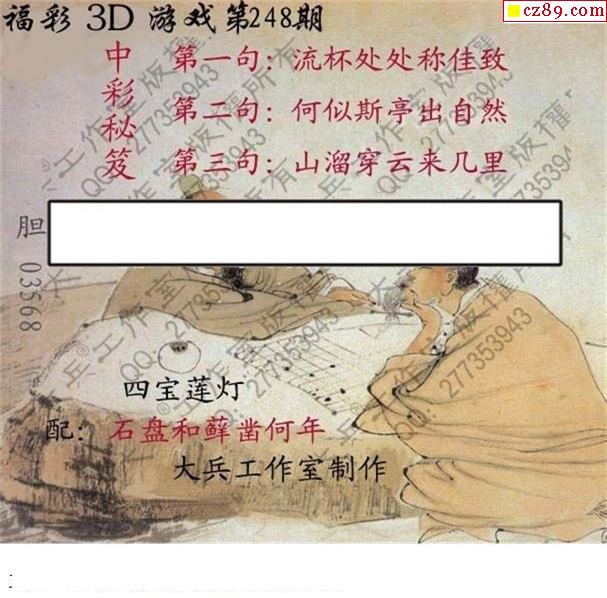 福彩 3D 游戏第248期
cz89.com
中彩秘笈
第一句：流杯处处称佳致
第二句：何似斯亭出自然
第三句：山溜穿云来几里
胆 03568
四宝莲灯
配：石盘和藓凿何年
大兵工作室制作
大兵工作室版权所有
QQ:277353943